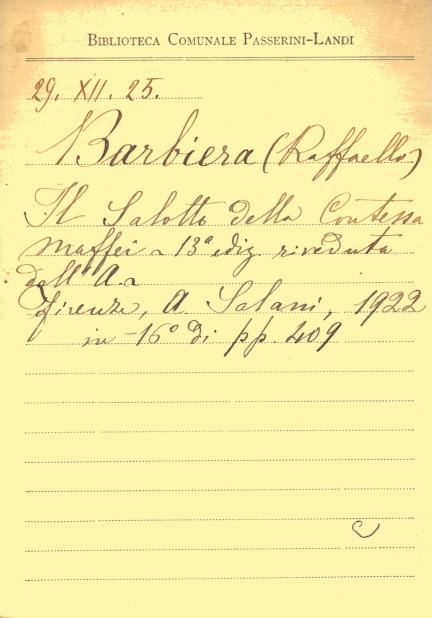 BIBLIOTECA COMUNALE PASSERINI-LANDI
29. XII. 25.
Barbiera (Raffaello)
Il Salotto della Contessa
Maffei - 13ª ediz. riveduta
dall' A. -
Firenze, A. Salani, 1922
in -16° di pp. 409